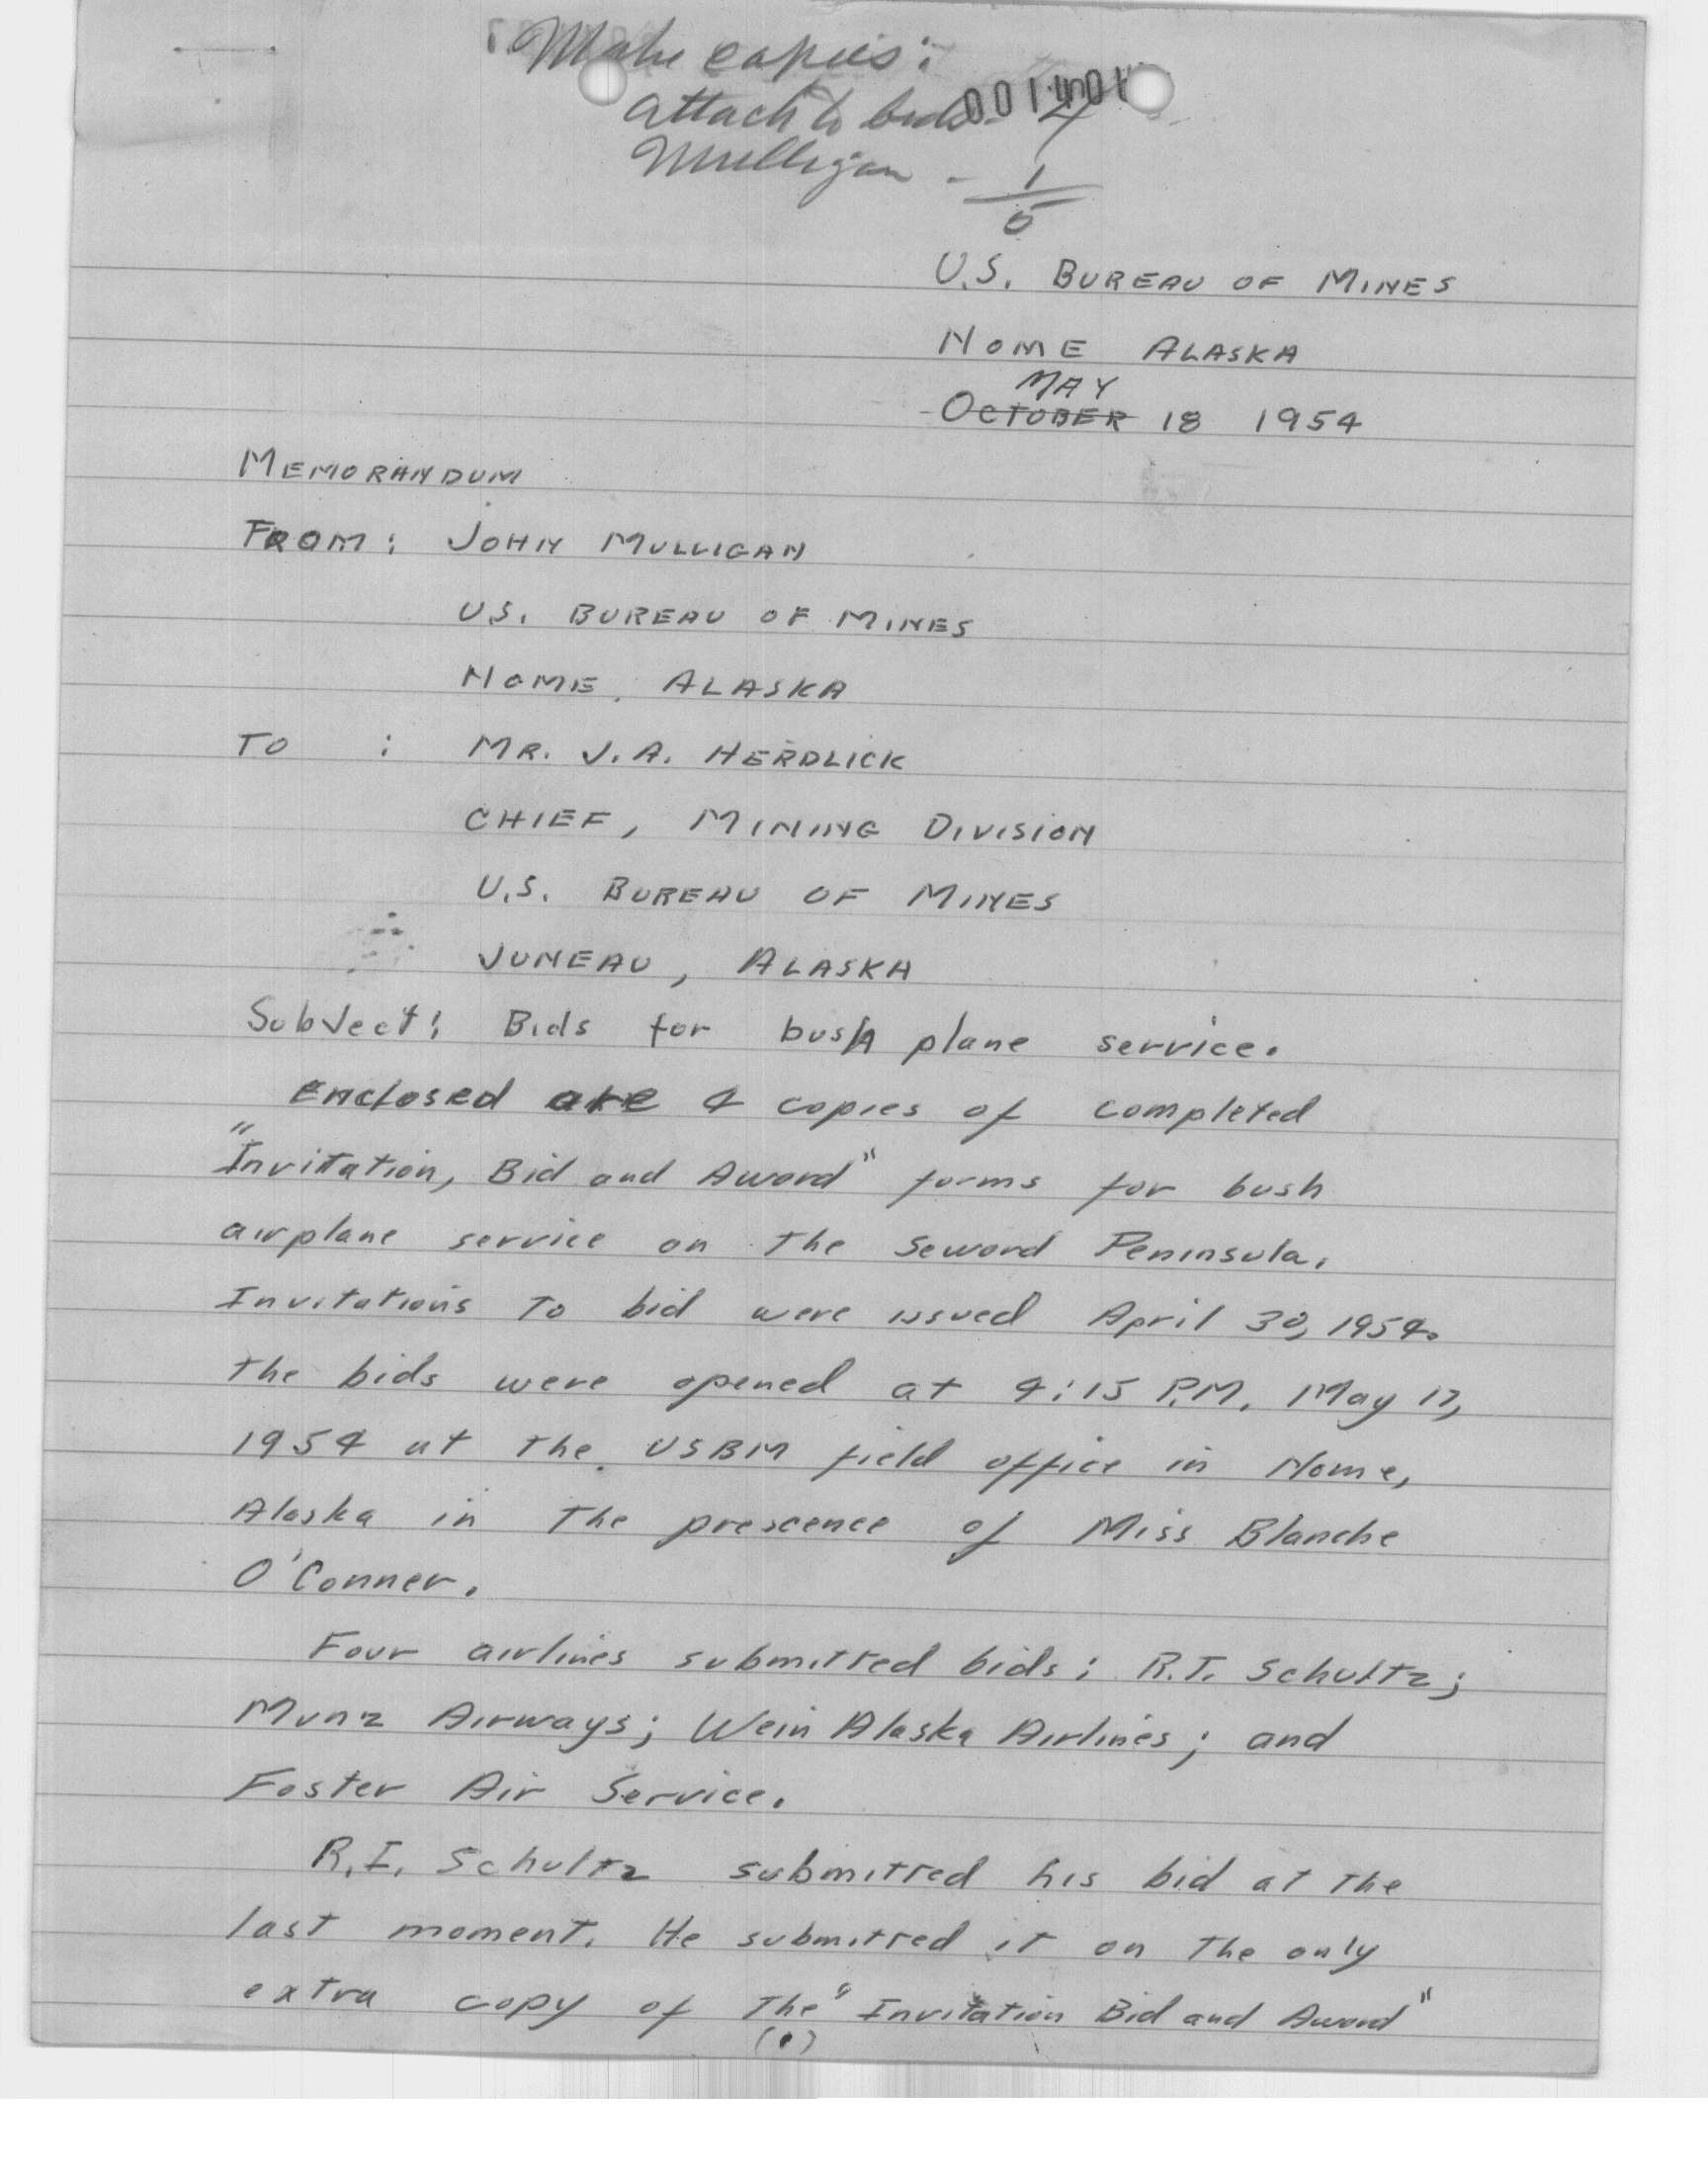 Make copies:
Attach to bids - 4
Mulligan - 1
5
U.S. BUREAU OF MINES
NOME ALASKA
MAY
OCTOBER 18 1954
MEMORANDUM
FROM: JOHN MULLIGAN
U.S. BUREAU OF MINES
NOME, ALASKA
TO : MR. J.A. HERDLICK
CHIEF, MINING DIVISION
U.S. BUREAU OF MINES
JUNEAU, ALASKA
Subject: Bids for bush plane service.
Enclosed are 4 copies of completed
"Invitation, Bid and Award" forms for bush
airplane service on the Seward Peninsula.
Invitations to bid were issued April 30, 1954.
The bids were opened at 4:15 P.M. May 17,
1954 at the USBM field office in Nome,
Alaska in the prescence of Miss Blanche
O'Conner.
Four airlines submitted bids: R.T. Schultz;
Munz Airways; Wein Alaska Airlines; and
Foster Air Service.
R.I. Schultz submitted his bid at the
last moment. He submitted it on the only
extra copy of the "Invitation Bid and Award"
(1)